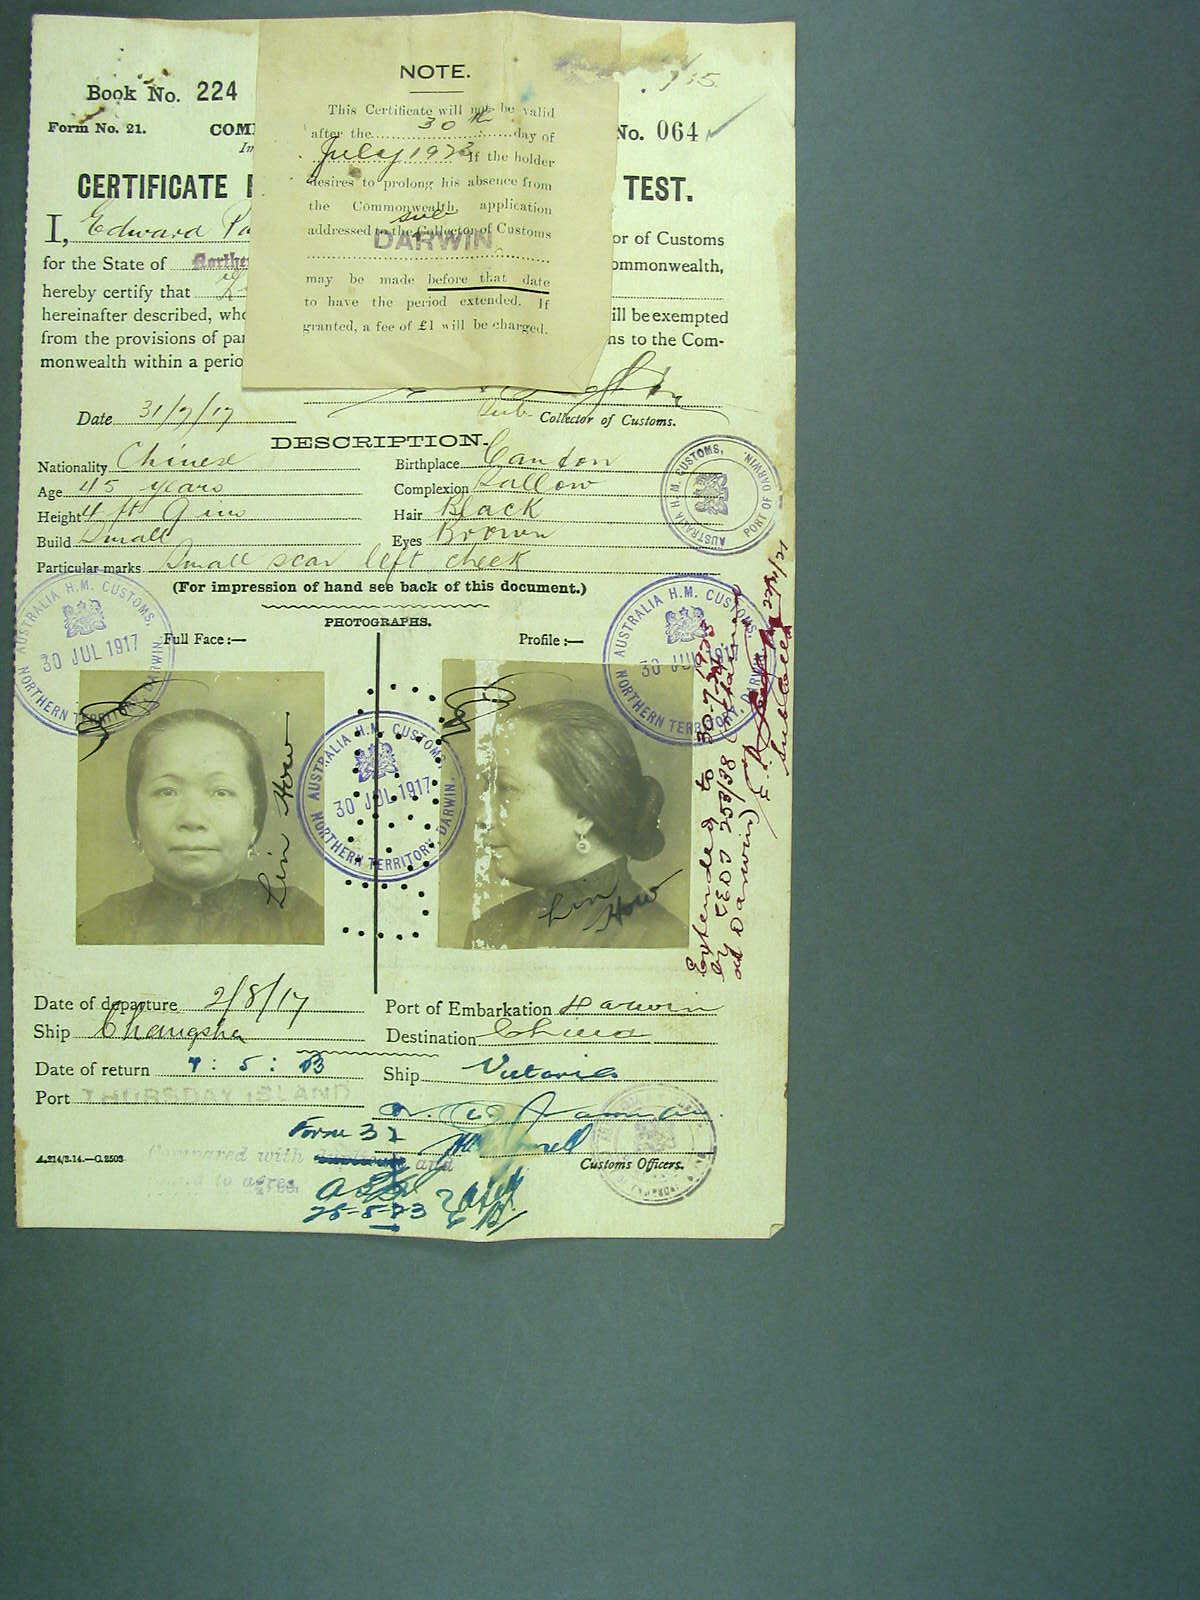 NOTE.
This Certificate will not be valid
after the 30th day of
July 1923 If the holder
desires to prolong his absence from
the Commonwealth, application
sub
addressed to the Collector of Customs
DARWIN
may be made before that date
to have the period extended. If
granted, a fee of £1 will be charged.
Book No. 224
Form No. 21. COM No. 064
CERTIFICATE TEST.
I, Edward or of Customs
for the State of Northe ommonwealth,
hereby certify that
hereinafter described, who ill be exempted
from the provisions of pa ns to the Com-
monwealth within a perio
Date 31/7/17 Sub Collector of Customs.
DESCRIPTION.
Nationality Chinese Birthplace Canton
Age 45 years Complexion Sallow
Height 4 ft 9 ins Hair Black
Build Small Eyes Brown
Particular marks Small scar left cheek
(For impression of hand see back of this document.)
PHOTOGRAPHS.
Full Face:— Profile:—
AUSTRALIA H.M. CUSTOMS, PORT OF DARWIN.
AUSTRALIA H.M. CUSTOMS,
30 JUL 1917
NORTHERN TERRITORY, DARWIN.
AUSTRALIA H.M. CUSTOMS,
30 JUL 1917
NORTHERN TERRITORY, DARWIN.
AUSTRALIA H.M. CUSTOMS,
30 JUL 1917
NORTHERN TERRITORY, DARWIN.
Lin How
Lin How
Extended to 30-7-1923
by C&DJ 253/38
at Darwin)
Sub Collector
Date of departure 2/8/17 Port of Embarkation Darwin
Ship Changsha Destination China
Date of return 7:5:23 Ship Victoria
Port THURSDAY ISLAND
Form 32
Customs Officers.
A.214/3.14.—C.2503
Compared with and
to agree
25-8-23